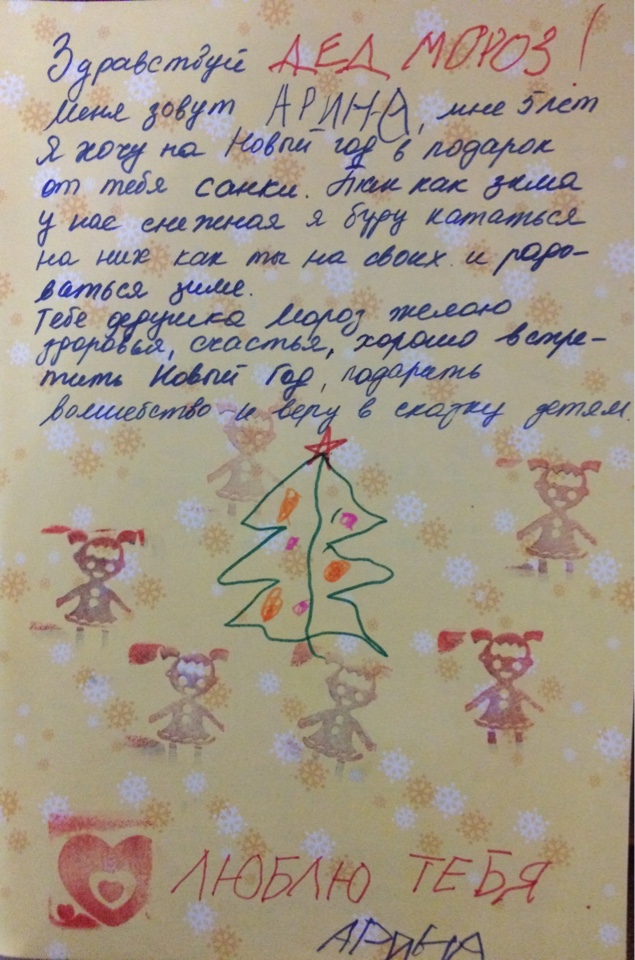 Здравствуй ДЕД МОРОЗ!
Меня зовут АРИНА, мне 5 лет
Я хочу на Новый год в подарок
от тебя санки. Так как зима
у нас снежная я буду кататься
на них как ты на своих и радо-
ваться зиме.
Тебе дедушка Мороз желаю
здоровья, счастья, хорошо встре-
тить Новый Год, подарить
волшебство и веру в сказку детям.
ЛЮБЛЮ ТЕБЯ
АРИНА